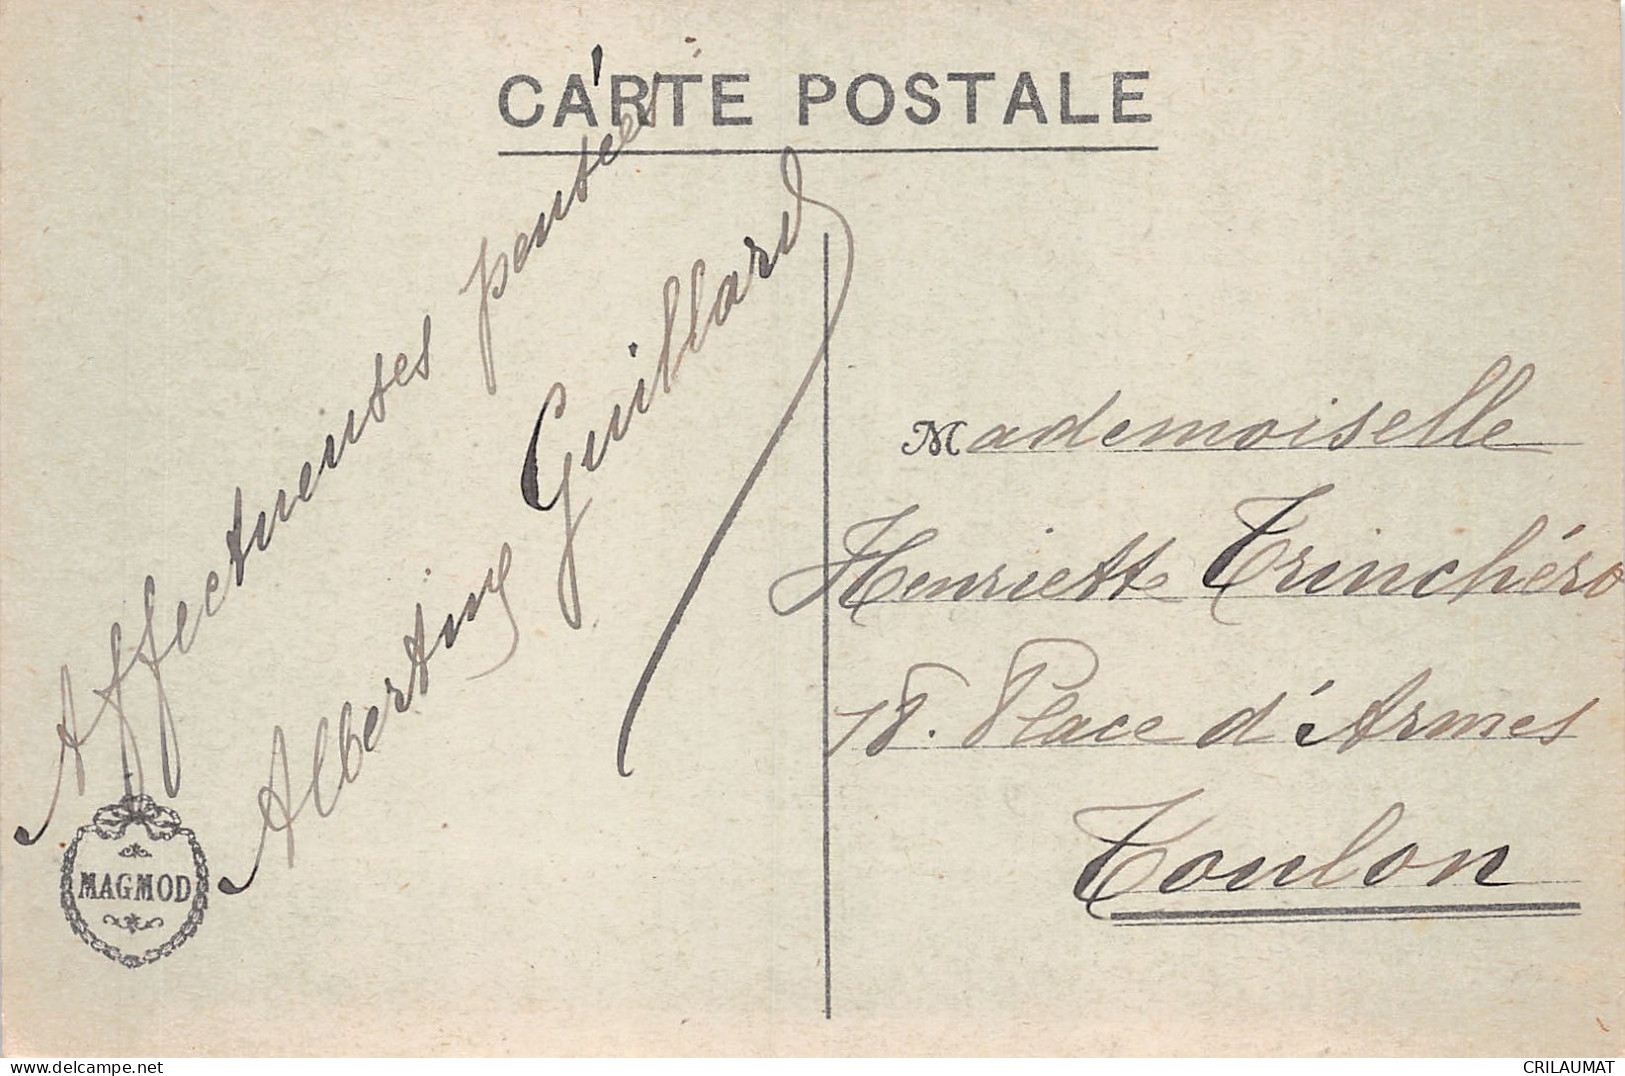 CARTE POSTALE
Affectueuses pensées
Albertine Guillard
Mademoiselle
Henriette Trinchéro
18. Place d'Armes
Toulon
MAGMOD
delcampe.net
CRILAUMAT